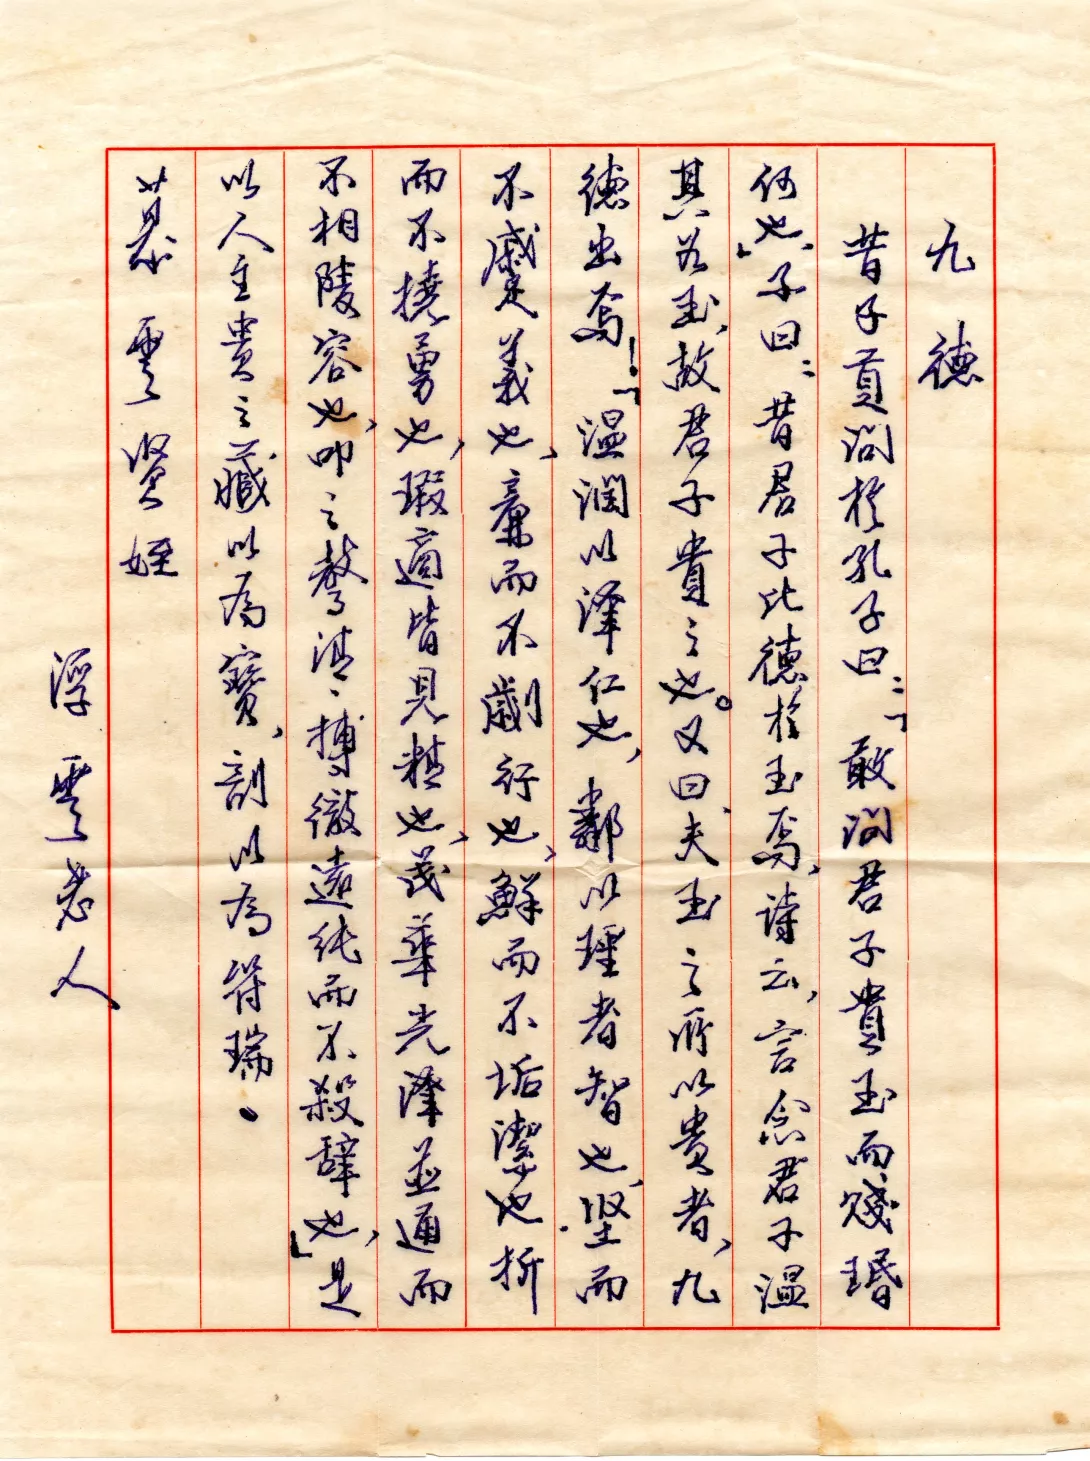 九德
昔子貢问於孔子曰：「敢问君子貴玉而賤瑉
何也」、子曰：昔君子比德於玉焉，诗云，言念君子温
其如玉，故君子貴之也。又曰、夫玉之所以貴者，九
德出焉！「温润以泽仁也，鄰以理者智也，坚而
不蹙義也，廉而不劌行也，鮮而不垢潔也折
而不撓勇也，瑕適皆見精也，茂華光泽並通而
不相陵容也，叩之声清、搏徹遠纯而不殺辞也」，是
以人主貴之藏以為寶，剖以為符瑞。
慕雲贤姪
浮雲老人